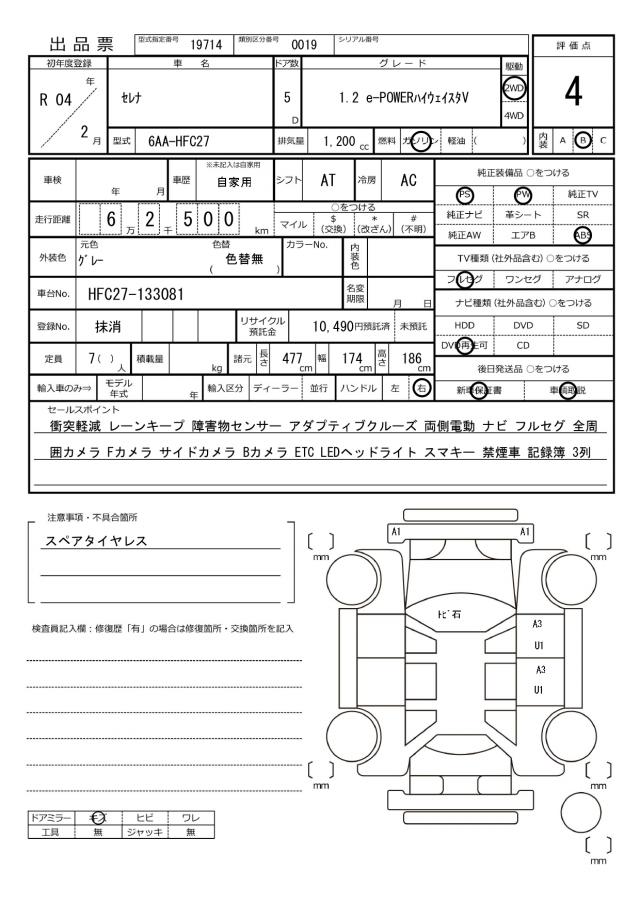 出品票 型式指定番号 19714 類別区分番号 0019 シリアル番号
評価点
4
内装 A B C
初年度登録 車名 ドア数 グレード 駆動
R 04 年 2 月
セレナ 5 D 1.2 e-POWERハイウェイスタV 2WD 4WD
型式 6AA-HFC27 排気量 1,200 cc 燃料 ガソリン 軽油 ( )
車検 年 月 車歴 ※未記入は自家用 自家用 シフト AT 冷房 AC
走行距離 6 万 2 千 5 0 0 km
○をつける
マイル $ (交換) * (改ざん) # (不明)
外装色 元色 グレー 色替 ( 色替無 ) カラーNo. 内装色
車台No. HFC27-133081 名変期限 月 日
登録No. 抹消 リサイクル預託金 10,490円預託済 未預託
定員 7( ) 人 積載量 kg 諸元 長さ 477 cm 幅 174 cm 高さ 186 cm
輸入車のみ⇒ モデル年式 年 輸入区分 ディーラー 並行 ハンドル 左 右
純正装備品 ○をつける
PS PW 純正TV
純正ナビ 革シート SR
純正AW エアB ABS
TV種類 (社外品含む) ○をつける
フルセグ ワンセグ アナログ
ナビ種類 (社外品含む) ○をつける
HDD DVD SD
DVD再生可 CD
後日発送品 ○をつける
新車保証書 車輌取説
セールスポイント
衝突軽減 レーンキープ 障害物センサー アダプティブクルーズ 両側電動 ナビ フルセグ 全周
囲カメラ Fカメラ サイドカメラ Bカメラ ETC LEDヘッドライト スマキー 禁煙車 記録簿 3列
注意事項・不具合箇所
スペアタイヤレス
検査員記入欄：修復歴「有」の場合は修復箇所・交換箇所を記入
ドアミラー キズ ヒビ ワレ
工具 無 ジャッキ 無
A1 A1
[ ] mm [ ] mm
トビ石
A3
U1
A3
U1
[ ] mm [ ] mm
[ ] mm